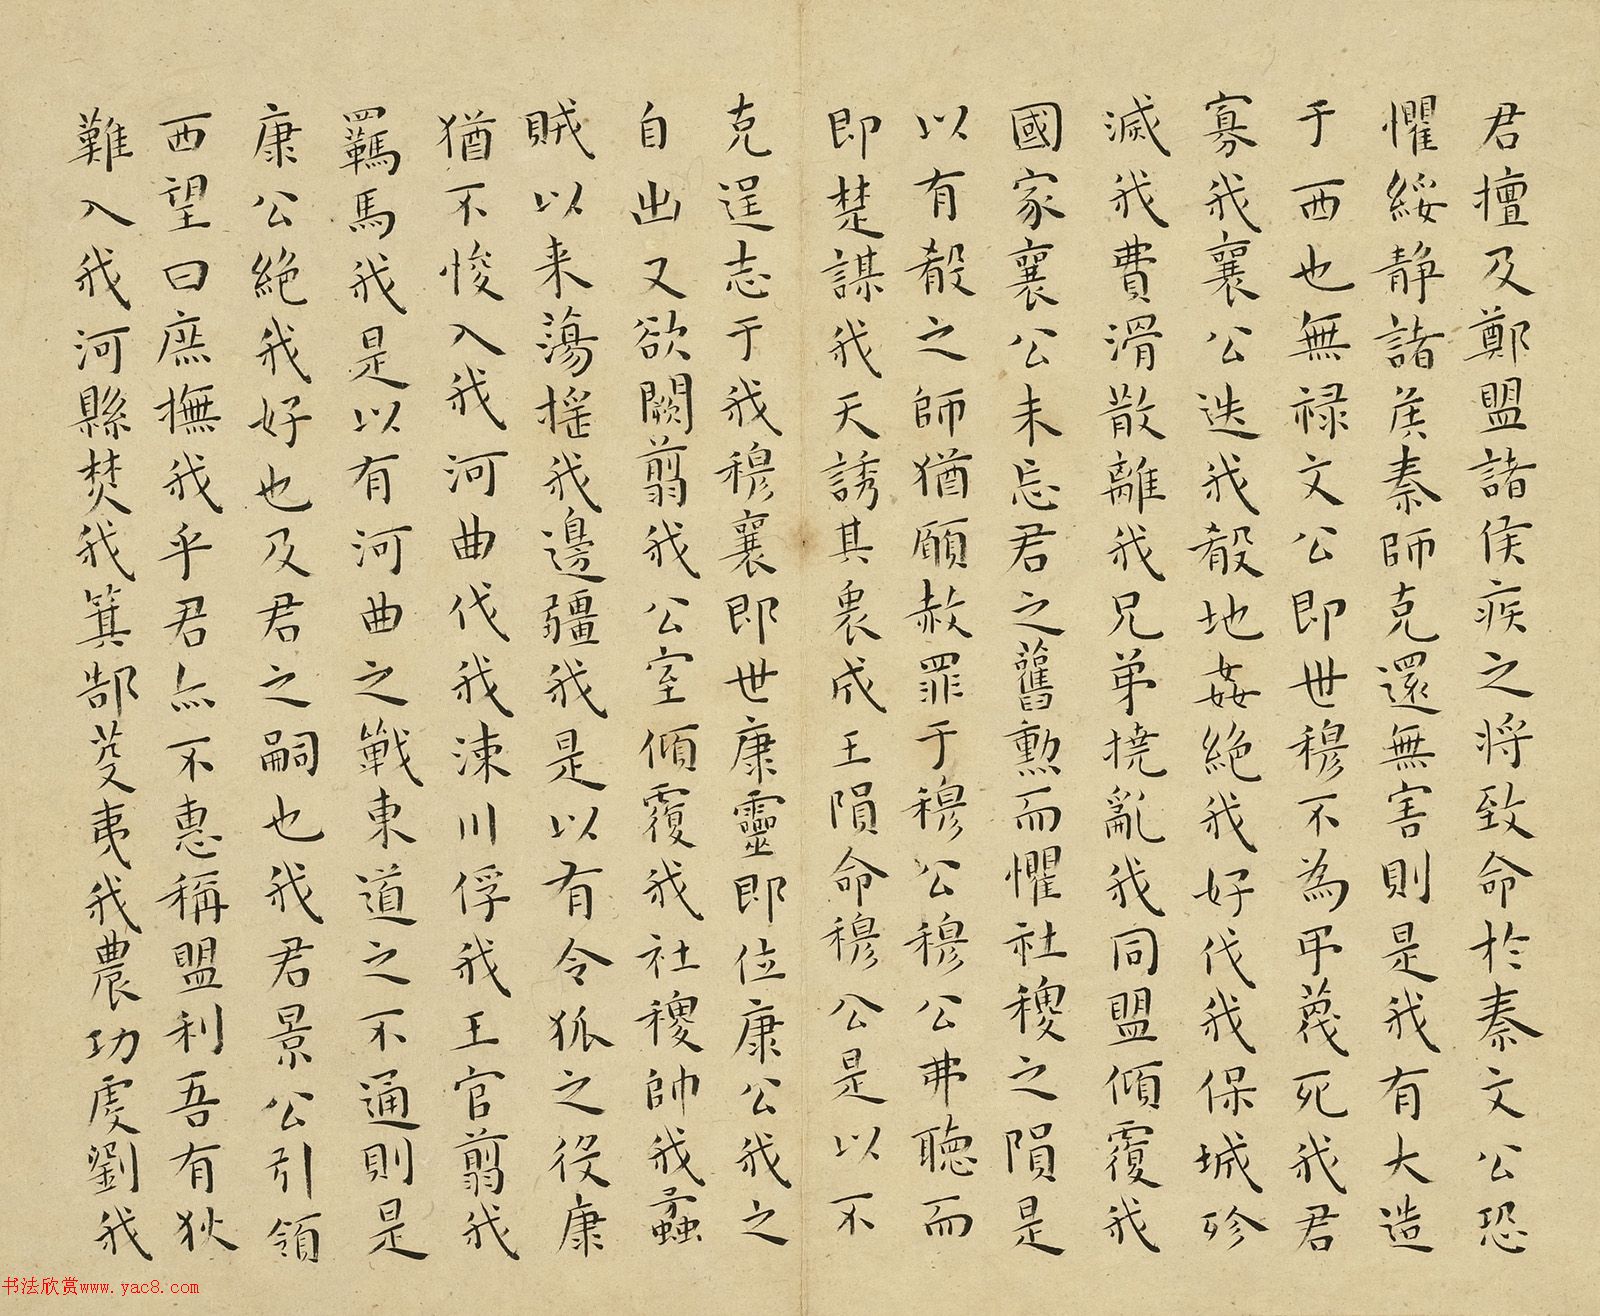 君擅及鄭盟諸侯疾之将致命於秦文公恐
懼綏静諸矦秦師克還無害則是我有大造
于西也無禄文公即世穆不為弔蔑死我君
寡我襄公迭我殽地姦絶我好伐我保城殄
滅我費滑散離我兄弟撓亂我同盟傾覆我
國家襄公未忘君之舊勲而懼社稷之隕是
以有殽之師猶願赦罪于穆公穆公弗聴而
即楚謀我天誘其衷成王隕命穆公是以不
克逞志于我穆襄即世康靈即位康公我之
自出又欲闕翦我公室傾覆我社稷帥我蟊
賊以来蕩摇我邊疆我是以有令狐之役康
猶不悛入我河曲伐我涑川俘我王官翦我
羈馬我是以有河曲之戰東道之不通則是
康公絶我好也及君之嗣也我君景公引領
西望曰庶撫我乎君亦不惠稱盟利吾有狄
難入我河縣焚我箕郜芟夷我農功虔劉我
书法欣赏www.yac8.com